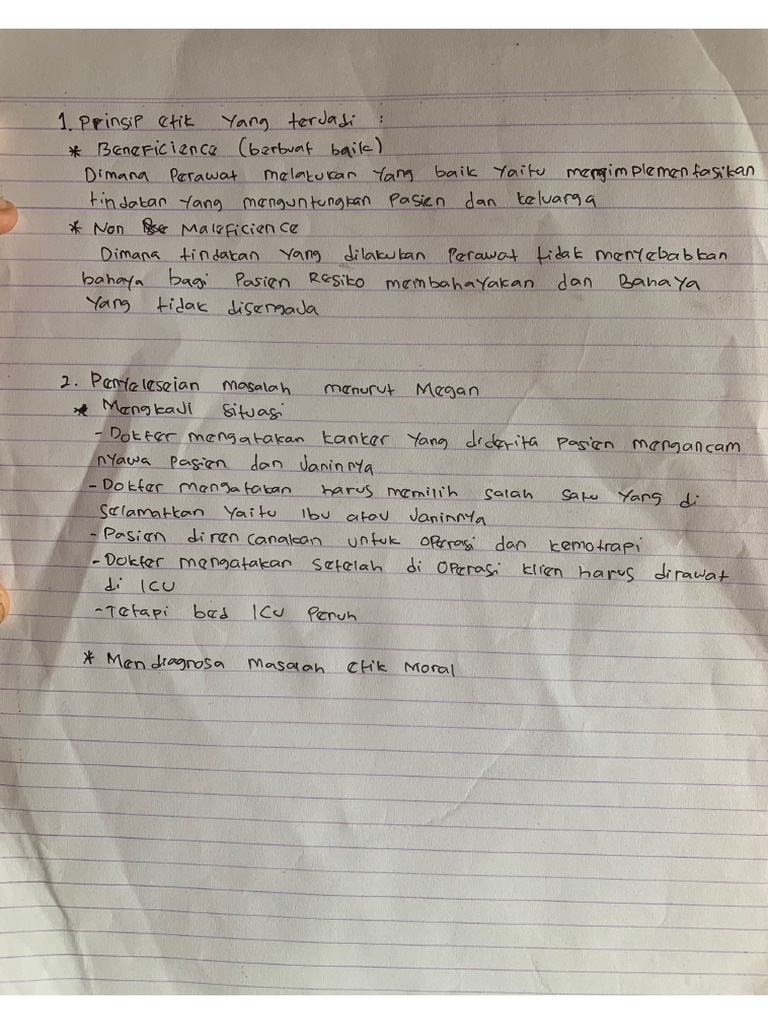 1. Prinsip etik yang terjadi :
* Beneficience (berbuat baik)
Dimana Perawat melakukan yang baik yaitu mengimplementasikan
tindakan yang menguntungkan Pasien dan keluarga
* Non Maleficience
Dimana tindakan yang dilakukan Perawat tidak menyebabkan
bahaya bagi Pasien Resiko membahayakan dan Bahaya
yang tidak disengada
2. Penyeleseian masalah menurut Megan
* Mengkaji situasi
- Dokter mengatakan kanker yang diderita pasien mengancam
nyawa pasien dan Janinnya
- Dokter mengatakan harus memilih salah satu yang di
selamatkan yaitu Ibu atau Janinnya
- Pasien direncanakan untuk operasi dan kemotrapi
- Dokter mengatakan setelah di operasi klien harus dirawat
di ICU
- Tetapi bed ICU Penuh
* Mendiagnosa masalah etik Moral